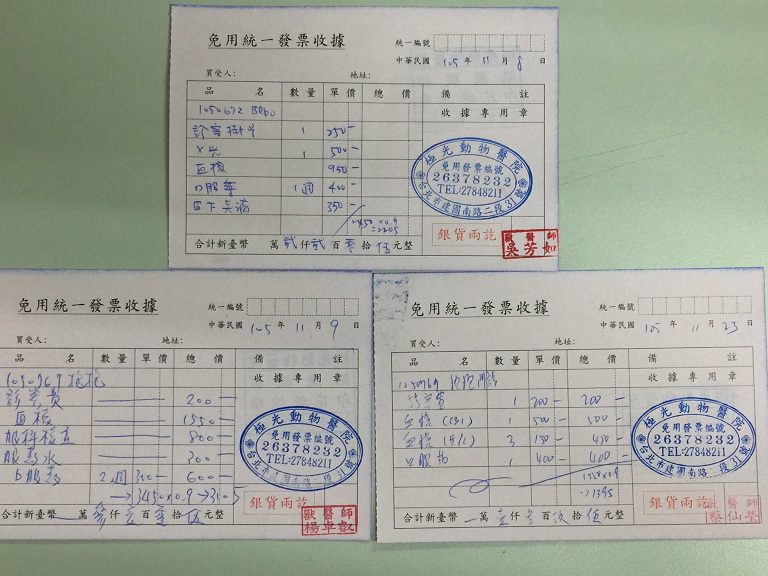 免用統一發票收據
統一編號
中華民國 105 年 11 月 8 日
買受人: 地址:
品 名 數量 單價 總 價 備 註
收據專用章
1050672 BoBo
診察掛号 1 250-
X光 1 500-
血檢 950-
口服藥 1週 400-
皮下点滴 350-
2450×0.9
=2205
極光動物醫院
免用發票編號
26378232
TEL:27848211
台北市建國南路二段31號
銀貨兩訖
獸醫師
吳芳如
合計新臺幣 萬 貳 仟 貳 百 零 拾 伍 元整
免用統一發票收據
統一編號
中華民國 105 年 11 月 9 日
買受人: 地址:
品 名 數量 單價 總 價 備 註
收據專用章
診察費 200-
血檢 1550-
眼科檢查 800-
眼藥水 300-
口服藥 2週 300- 600-
→3450×0.9→3105
極光動物醫院
免用發票編號
26378232
TEL:27848211
台北市建國南路二段31號
銀貨兩訖
獸醫師
合計新臺幣 萬 參 仟 壹 百 零 拾 伍 元整
免用統一發票收據
統一編號
中華民國 105 年 11 月 23 日
買受人: 地址:
品 名 數量 單價 總 價 備 註
收據專用章
1050969
診察費 1 200- 200-
血檢 (CBC) 1 500- 500-
血檢 (生化) 3 150- 450-
口服藥 1 400- 400-
1550×0.9
=1395
極光動物醫院
免用發票編號
26378232
TEL:27848211
台北市建國南路二段31號
銀貨兩訖
獸醫師
合計新臺幣 萬 壹 仟 參 百 玖 拾 伍 元整